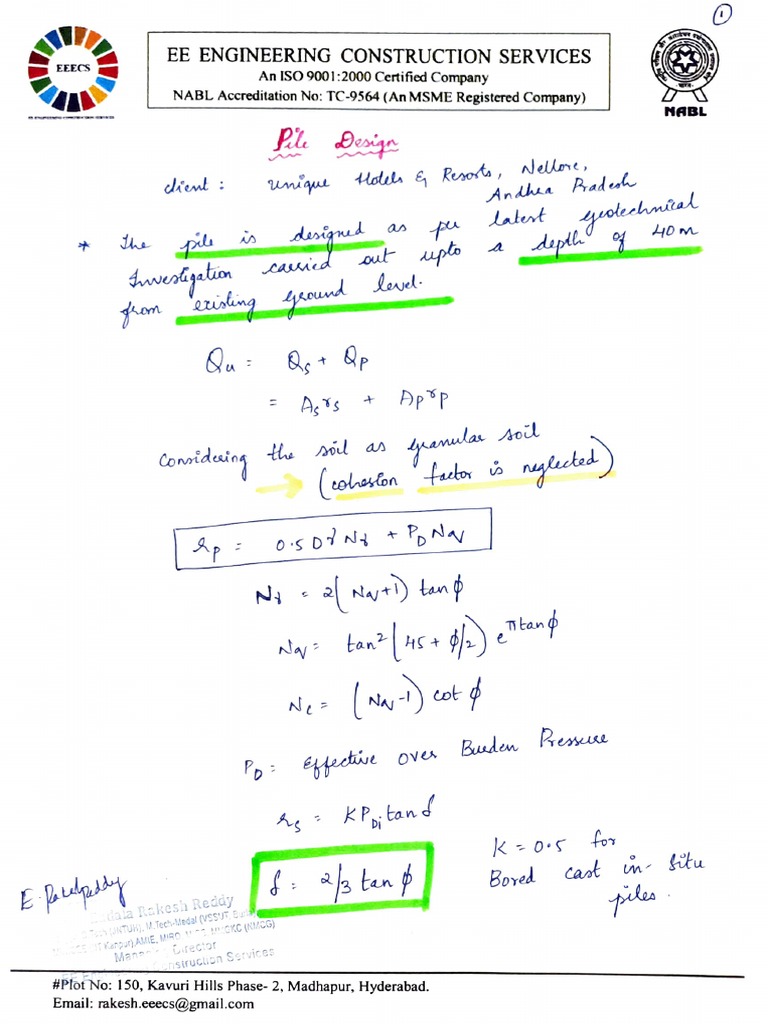 1
EEECS
EE ENGINEERING CONSTRUCTION SERVICES
EE ENGINEERING CONSTRUCTION SERVICES
An ISO 9001:2000 Certified Company
NABL Accreditation No: TC-9564 (An MSME Registered Company)
NABL
Pile Design
client : Unique Hotels & Resorts, Nellore,
Andhra Pradesh
* The pile is designed as per latest geotechnical
Investigation carried out upto a depth of 40m
from existing ground level.
Qu = Qs + Qp
= Asrs + Aprp
Considering the soil as granular soil
→ (cohesion factor is neglected)
rp = 0.5 DγNγ + PD Nq
Nγ = 2(Nq+1) tanϕ
Nq = tan²(45 + ϕ/2) e^πtanϕ
Nc = (Nq-1) cot ϕ
PD = Effective Over Burden Pressure
rs = KPDi tan δ
δ = 2/3 tan ϕ
K = 0.5 for
Bored cast in-situ
piles.
Rakesh Reddy
M.Tech-Medal
Director
Construction Services
#Plot No: 150, Kavuri Hills Phase- 2, Madhapur, Hyderabad.
Email: rakesh.eeecs@gmail.com